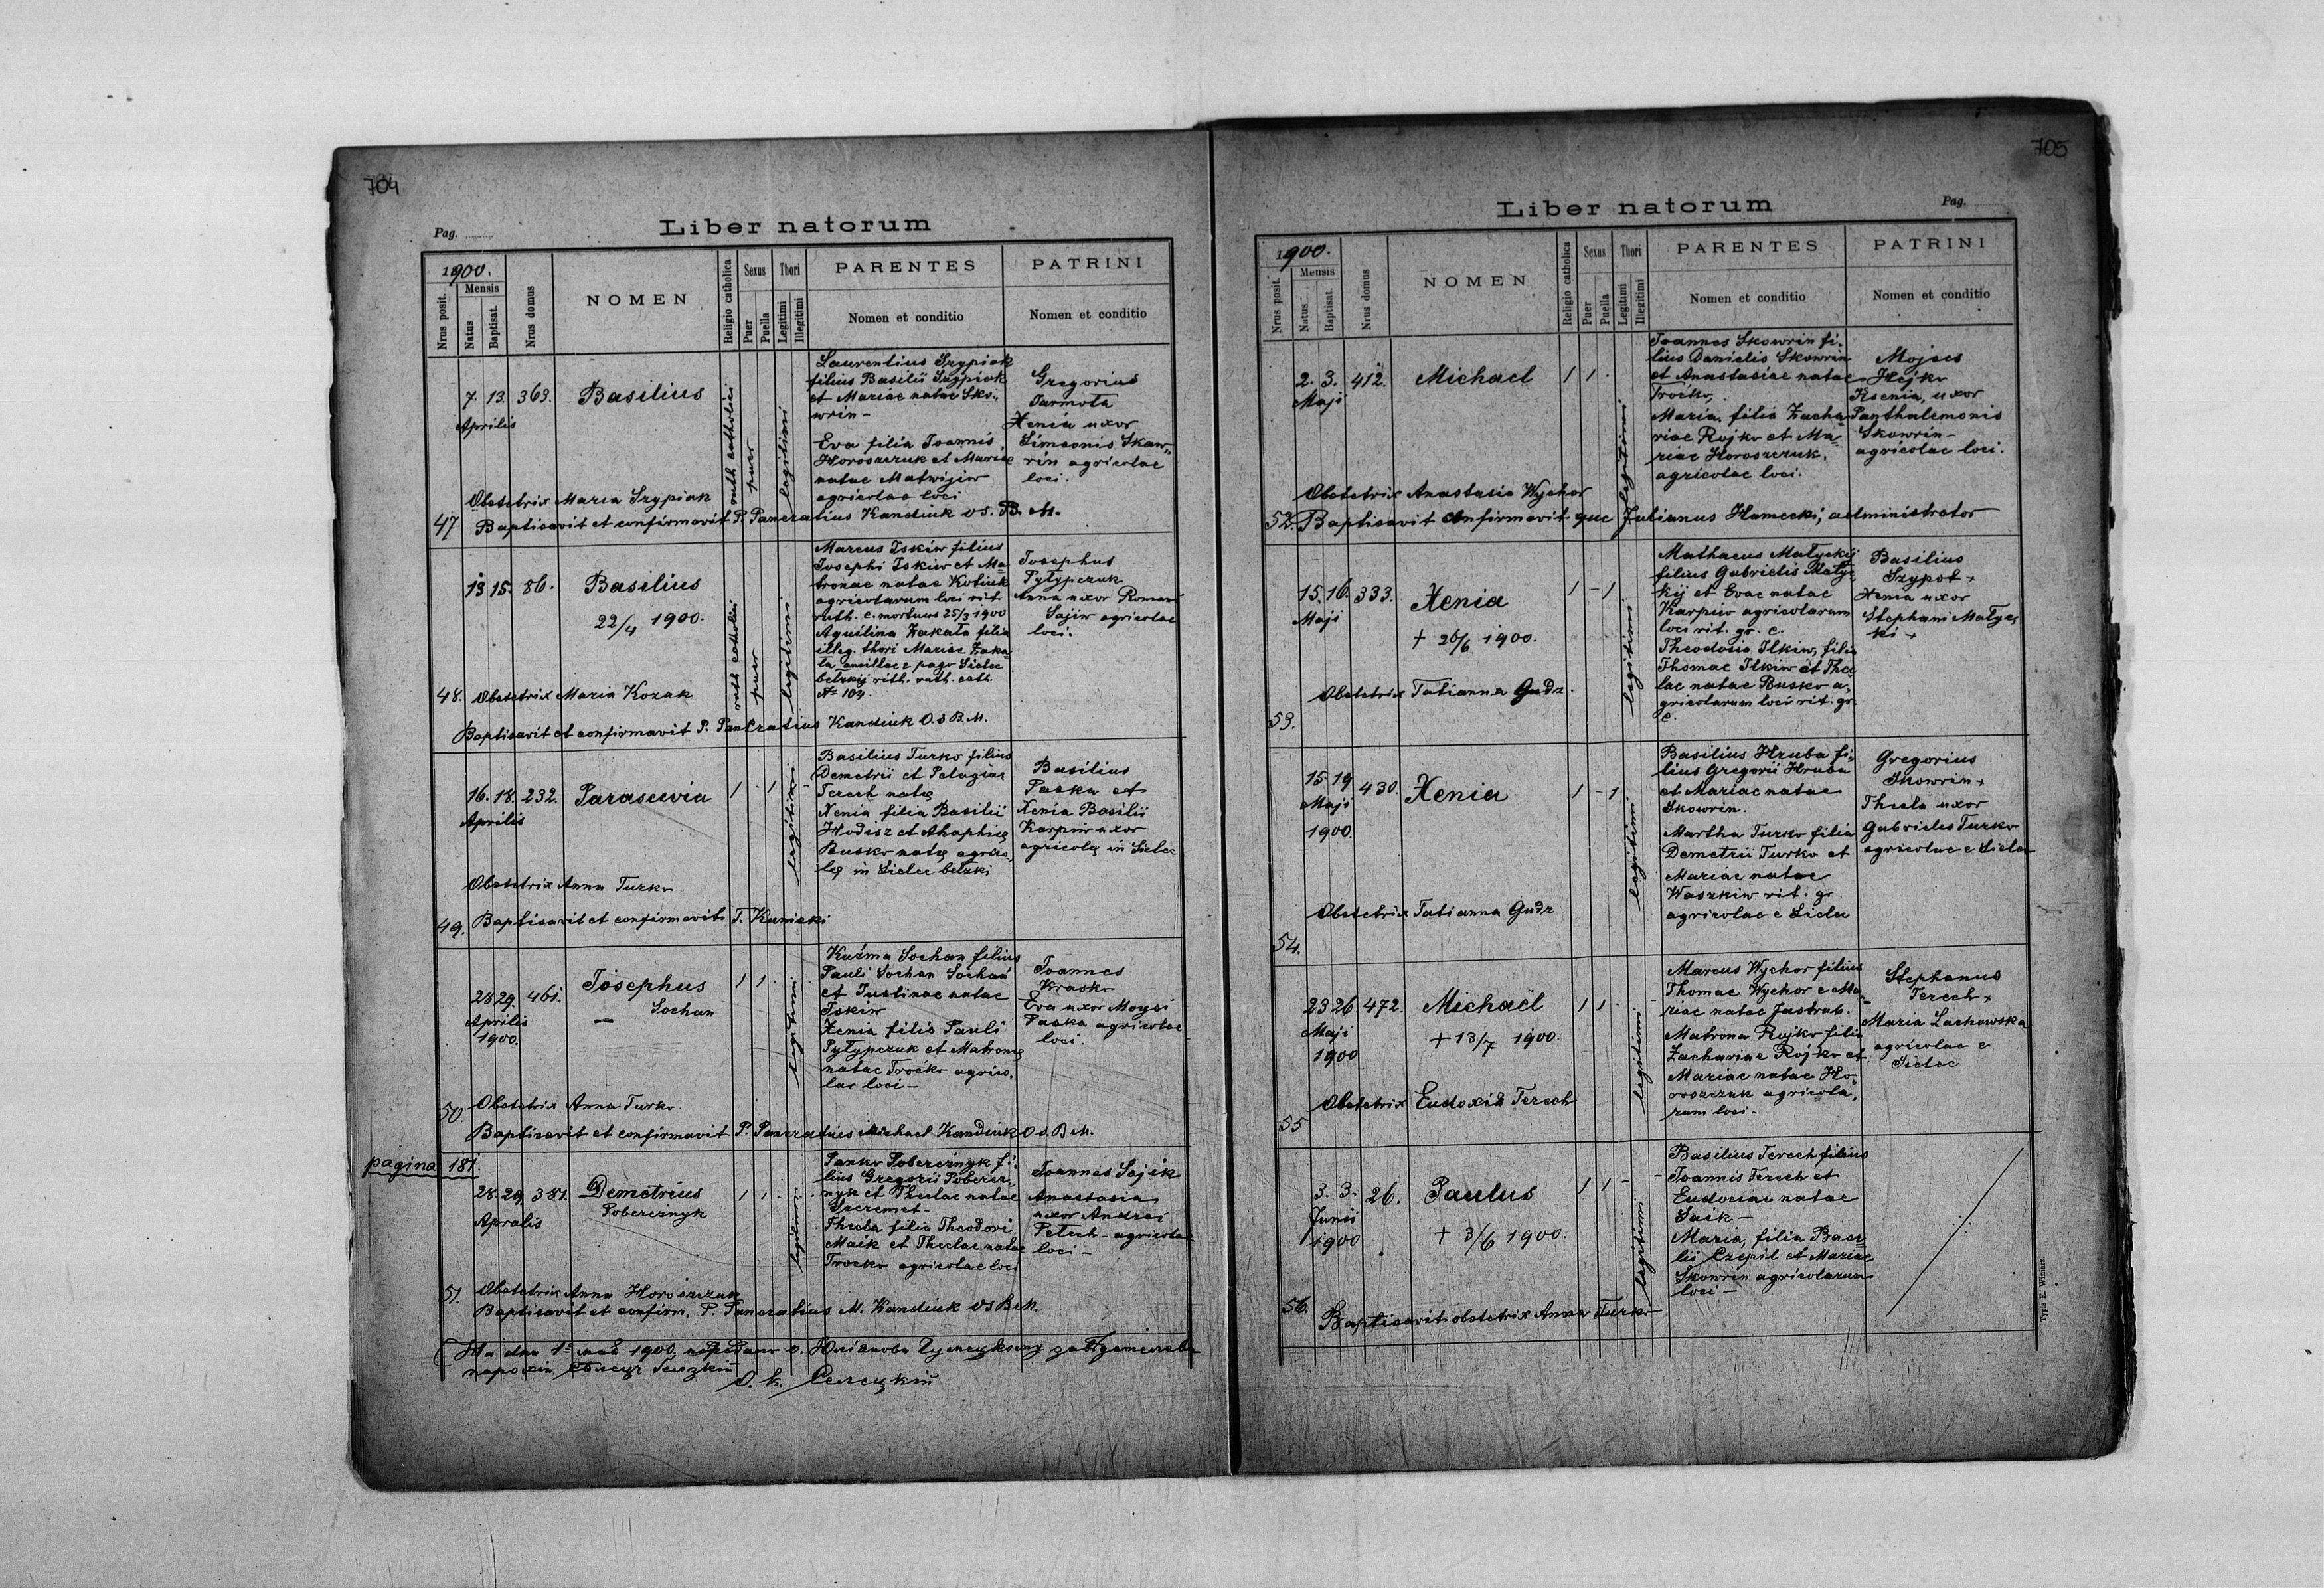 704
Pag. ..........
Liber natorum
1900.
Nrus posit.
Mensis
Natus
Baptisat.
Nrus domus
NOMEN
Religio catholica
Sexus
Puer
Puella
Thori
Legitimi
Illegitimi
PARENTES
Nomen et conditio
PATRINI
Nomen et conditio
7. 13. 369. Basilius
Aprilis
ruth catholici
puer
legitimi
Laurentius Szypiak
filius Basilii Szypiak
et Mariae natae Sko„
wrin –
Eva filia Joannis
Horoszczuk et Mariae
natae Matwijiw
agricolae loci
Gregorius
Jarmota
Xenia uxor
Simeonis Skaw„
rin agricolae
loci.
Obstetrix Maria Szypiak
47 Baptisavit et confirmavit P. Pancratius Kandiuk OS. B. M.
13 15. 86. Basilius
22/4 1900.
ruth catholici
puer
legitimi
Marcus Iskiw filius
Josephi Iskiw et Ma„
tronae natae Kotiuk
agricolarum loci rit
ruth. c. mortuus 25/3 1900
Aquilina Zakala filia
illeg. thori Mariae Zaka„
la ancillae e pago Sielec
belzkij rith. ruth. cath
№ 104.
Josephus
Pylypczuk
Anna uxor Romani
Sajiw agricolae
loci.
48. Obstetrix Maria Kozak
Baptisavit et confirmavit P. Pancratius Kandiuk O.S B. M.
16. 18. 232. Parascevia 1 · 1
Aprilis
legitimi
Basilius Turko filius
Demetrii et Pelagiae
Terech natę
Xenia filia Basilii
Hodisz et Ahaphię
Busko natę agrico„
lę in Sielec belzki
Basilius
Paska et
Xenia Basilii
Karpiw uxor
agricolę in Sielec
Obstetrix Anna Turko
49. Baptisavit et confirmavit T. Kunicki
28 29. 461. Josephus 1 1 ·
Sochan
Aprilis
1900.
legitimi
Kuźma Sochan filius
Pauli Sochan Sochan
et Justinae natae
Iskiw
Xenia filia Pauli
Pylypczuk et Matronę
natae Troćko agrico„
lae loci –
Joannes
Krasko
Eva uxor Moysi
Paska agricolae
loci.
Obstetrix Anna Turko.
50. Baptisavit et confirmavit P. Pancratius Michael Kandiuk O S. B M.
pagina 181.
28. 29 381. Demetrius 1 1
Poberežnyk
Aprilis
legitimi
Panko Poberežnyk fi„
lius Gregorii Poberež„
nyk et Theclae natae
Szeremet –
Thecla filia Theodori
Maik et Theclae natae
Trocko agricolae loci
Joannes Sajik
Anastasia
uxor Andrei
Petech – agricolae
loci –
51. Obstetrix Anna Horoszczuk
Baptisavit et confirm. P. Pancratius M. Kandiuk OSBM.
На дни 1 мая 1900. передано о.
парохіи
705
Liber natorum
Pag. ..........
1900.
Nrus posit.
Mensis
Natus
Baptisat.
Nrus domus
NOMEN
Religio catholica
Sexus
Puer
Puella
Thori
Legitimi
Illegitimi
PARENTES
Nomen et conditio
PATRINI
Nomen et conditio
2. 3. 412. Michael 1 1 ·
Maji
legitimi
Joannes Skowrin fi„
lius Danielis Skowrin
et Anastasiae natae
Troćko,
Maria, filia Zacha„
riae Rojko et Ma„
riae Horoszczuk,
agricolae loci.
Mojses
Hejko
Ksenia, uxor
Panthalemonis
Skowrin –
agricolae loci.
Obstetrix Anastasia Wychor
52. Baptisavit confirmavit que Julianus Humecki, administrator
15. 16. 333. Xenia 1 – 1
Maji
+ 26/6 1900.
legitimi
Mathaeus Matyckij
filius Gabrielis Matyc„
kij et Evae natae
Karpiw agricolarum
loci rit. gr. c.
Theodosia Ilkiw, filia
Thomae Ilkiw et Thec„
lae natae Busko a„
gricolarum loci rit. gr.
c.
Basilius
Szypot +
Xenia uxor
Stephani Matyc„
ki +
Obstetrix Tatianna Gudz.
53.
15 19 430. Xenia 1 – 1
Maji
1900.
legitimi
Basilius Hruba fi„
lius Gregorii Hruba
et Mariae natae
Skowrin.
Martha Turko filia
Demetrii Turko et
Mariae natae
Waszkiw rit. gr
agricolae e Sielec
Gregorius
Skowrin +
Thecla uxor
Gabrieles Turko
agricolae e Sielec
Obstetrix Tatianna Gudz
54.
23 26 472. Michaël 1 1
Maji
1900
+ 13/7 1900.
legitimi
Marcus Wychor filius
Thomae Wychor e Ma„
riae natae Jastrub.
Matrona Rojko filia
Zachariae Rojko et
Mariae natae Ho„
roszczuk agricola„
rum loci –
Stephanus
Terech +
Maria Lachowska
agricolae e
Sielec
Obstetrix Eudoxia Terech
55
3. 3. 26. Paulus 1 1 –
Junii
1900
+ 3/6 1900.
legitimi
Basilius Terech filius
Joannis Terech et
Eudociae natae
Saik –
Maria, filia Basi„
lii Czepil et Mariae
Skowrin agricolarum
loci –
56. Baptisavit obstetrix Anna Turko
Typis E. Winiarz.